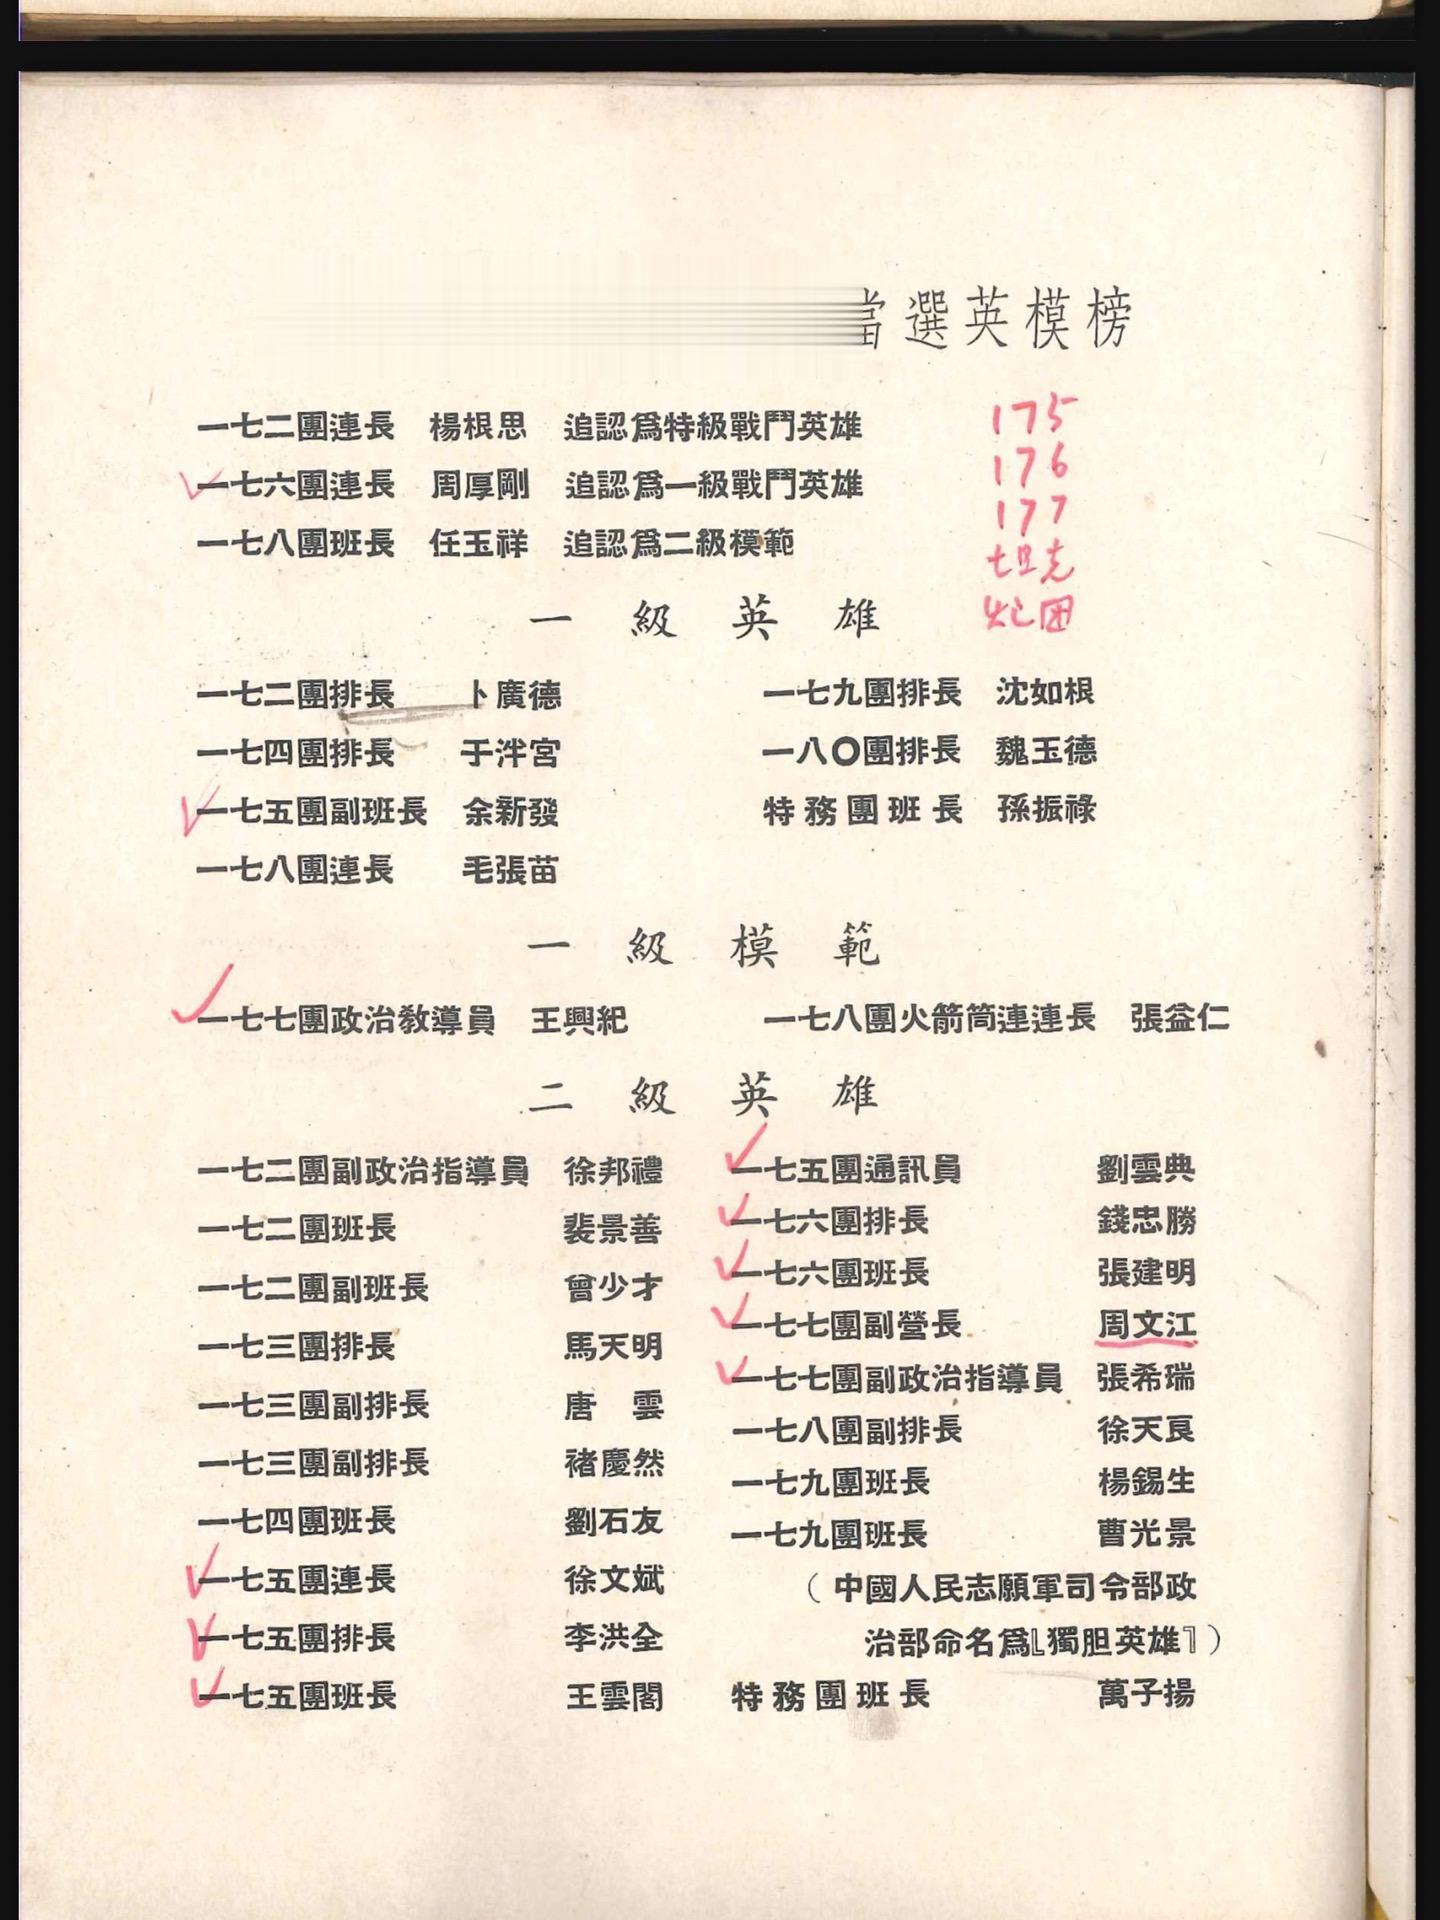 當選英模榜
一七二團連長 楊根思 追認爲特級戰鬥英雄
一七六團連長 周厚剛 追認爲一級戰鬥英雄
一七八團班長 任玉祥 追認爲二級模範
175
176
177
坦克
炮团
一級英雄
一七二團排長 卜廣德
一七四團排長 于泮宮
一七五團副班長 余新發
一七八團連長 毛張苗
一七九團排長 沈如根
一八〇團排長 魏玉德
特務團班長 孫振祿
一級模範
一七七團政治教導員 王興紀
一七八團火箭筒連連長 張益仁
二級英雄
一七二團副政治指導員 徐邦禮
一七二團班長 裴景善
一七二團副班長 曾少才
一七三團排長 馬天明
一七三團副排長 唐雲
一七三團副排長 褚慶然
一七四團班長 劉石友
一七五團連長 徐文斌
一七五團排長 李洪全
一七五團班長 王雲閣
一七五團通訊員 劉雲典
一七六團排長 錢忠勝
一七六團班長 張建明
一七七團副營長 周文江
一七七團副政治指導員 張希瑞
一七八團副排長 徐天良
一七九團班長 楊錫生
一七九團班長 曹光景
（中國人民志願軍司令部政
治部命名爲﹂獨胆英雄﹁）
特務團班長 萬子揚